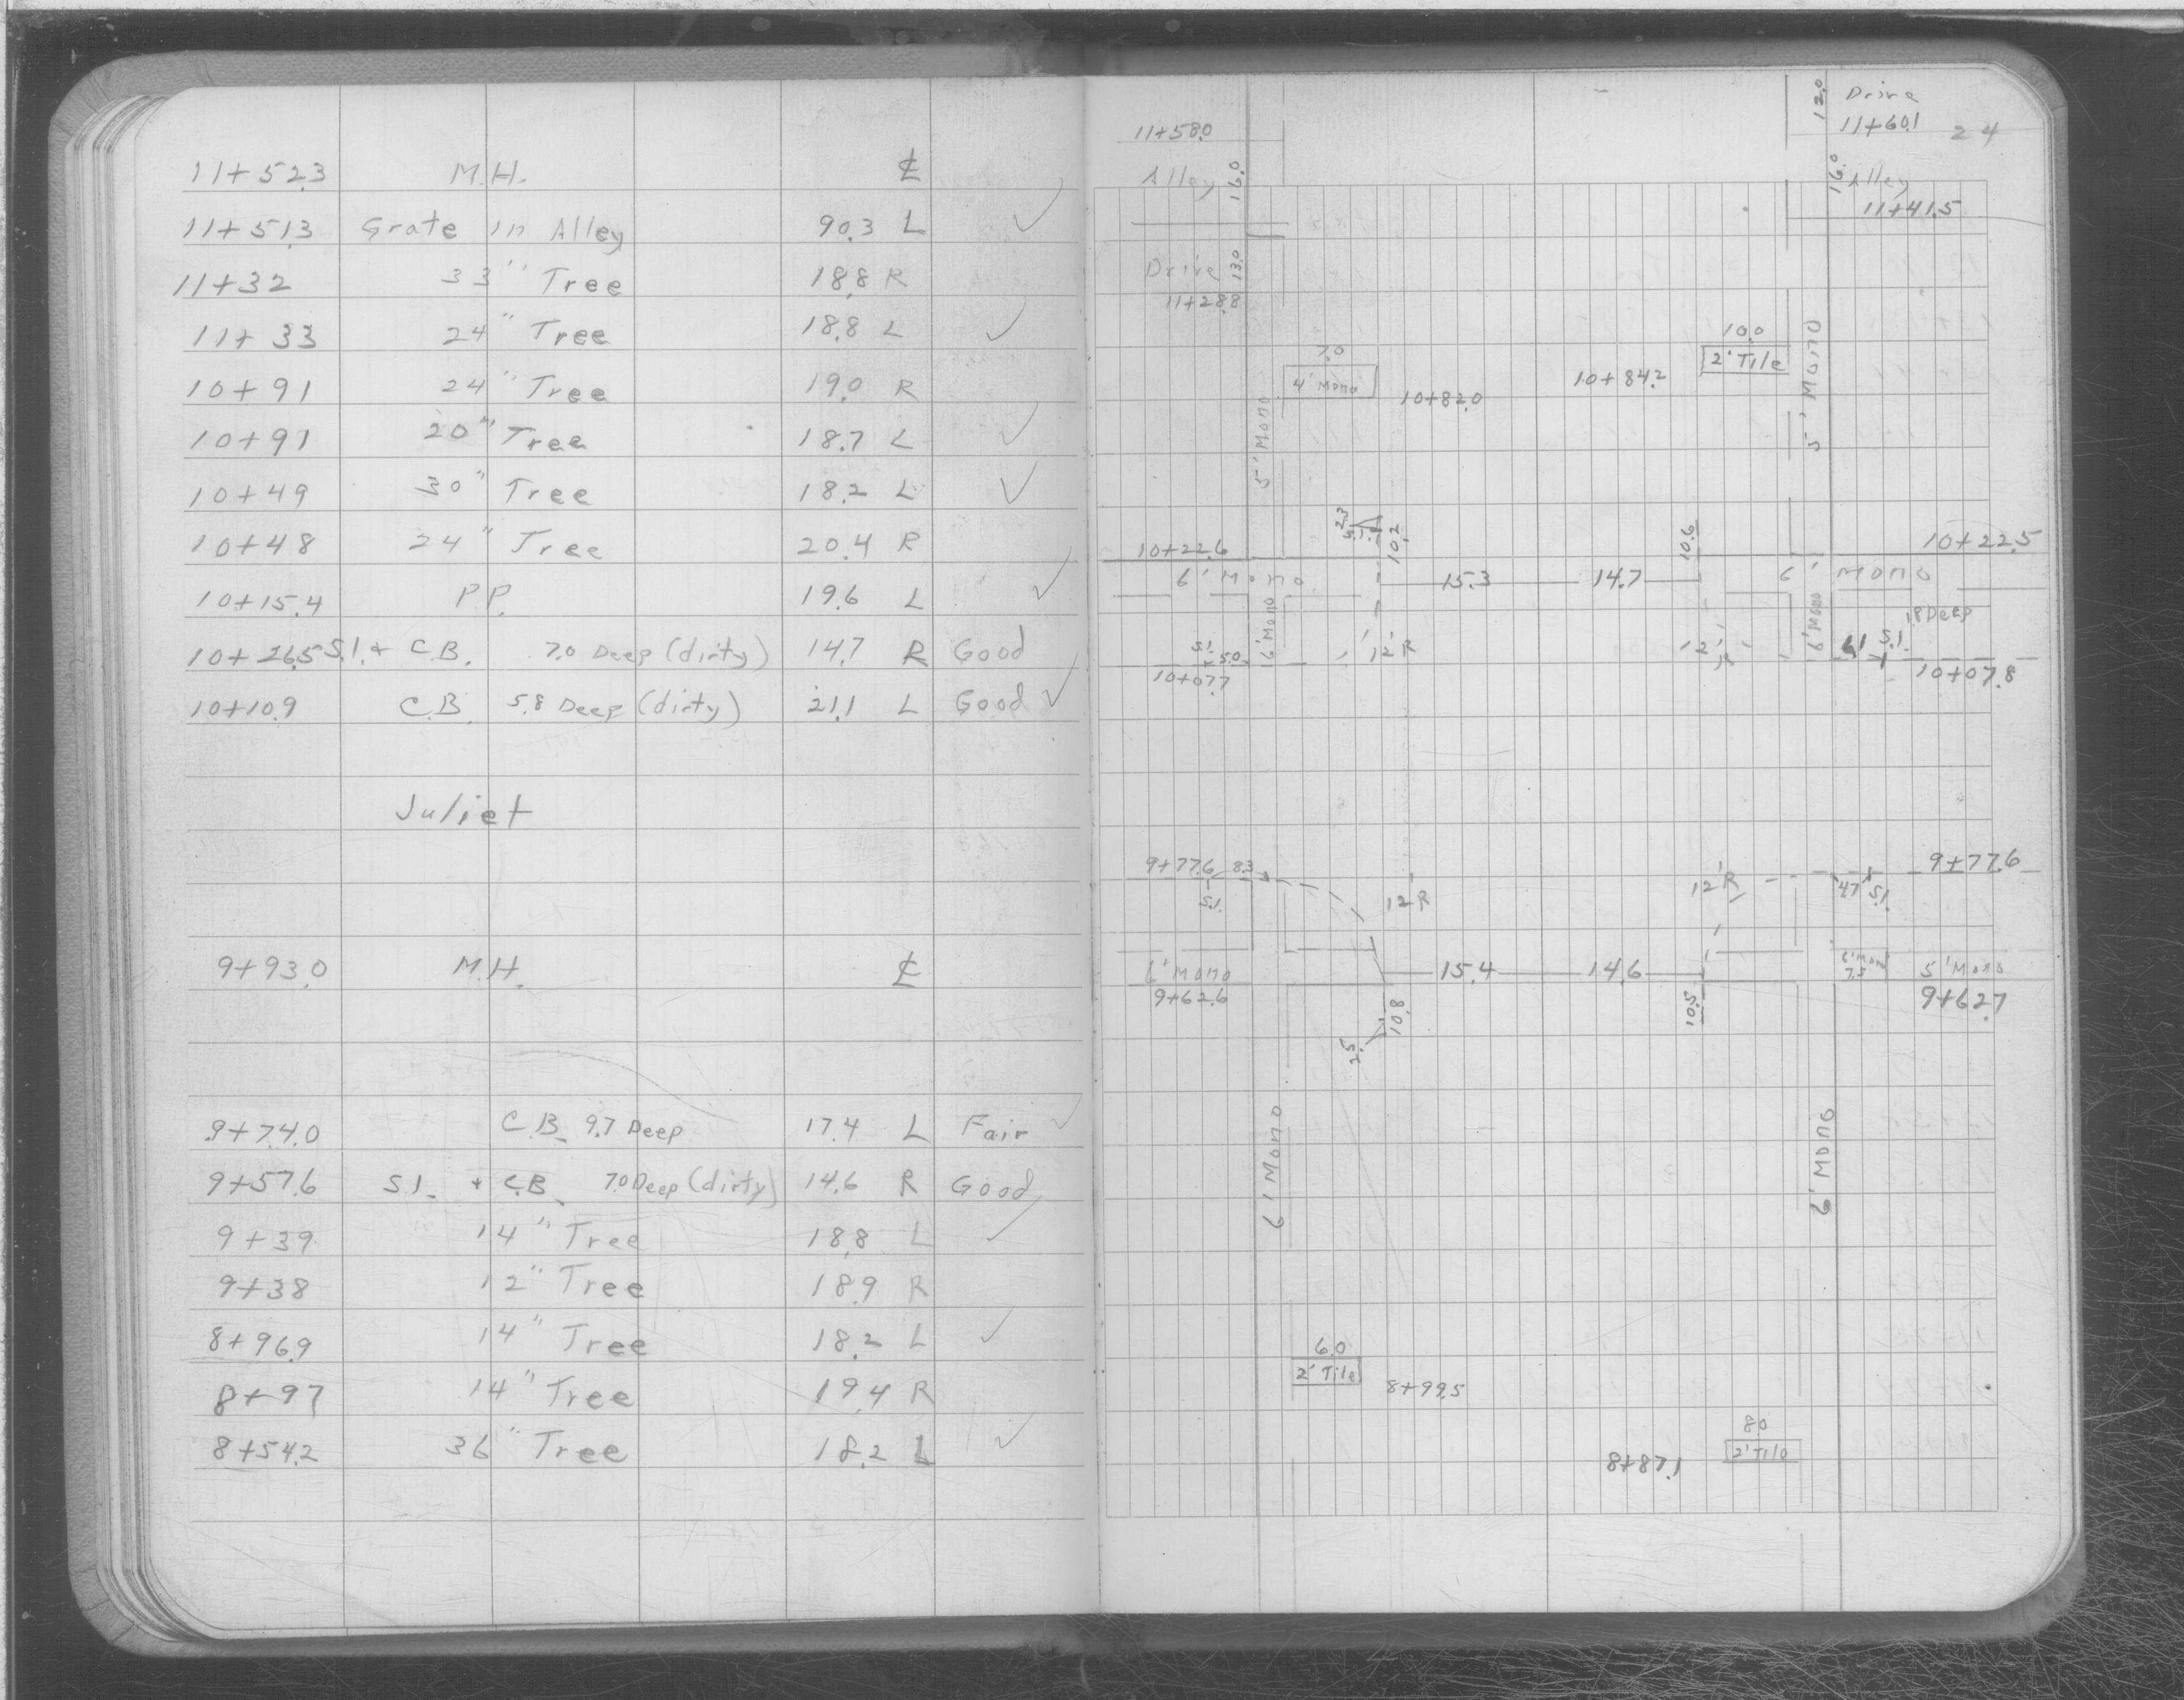 11+52.3 M.H. ℄
11+51.3 Grate in Alley 90.3 L ✓
11+32 33" Tree 18.8 R
11+33 24" Tree 18.8 L ✓
10+91 24" Tree 19.0 R
10+91 20" Tree 18.7 L ✓
10+49 30" Tree 18.2 L ✓
10+48 24" Tree 20.4 R
10+15.4 P.P. 19.6 L ✓
10+26.5 S.I. + C.B. 7.0 Deep (dirty) 14.7 R Good
10+10.9 C.B. 5.8 Deep (dirty) 21.1 L Good ✓
Juliet
9+93.0 M.H. ℄
9+74.0 C.B. 9.7 Deep 17.4 L Fair ✓
9+57.6 S.I. + C.B. 7.0 Deep (dirty) 14.6 R Good
9+39 14" Tree 18.8 L ✓
9+38 12" Tree 18.9 R
8+96.9 14" Tree 18.2 L ✓
8+97 14" Tree 19.4 R
8+54.2 36" Tree 18.2 L ✓
12.0 Drive
11+58.0 11+60.1 24
Alley 16.0 16.0 Alley
11+41.5
Drive 13.0
11+28.8
7.0 10.0
4' Mono 2' Tile
10+82.0 10+84.2
5' Mono 5' Mono
2.3 S.I. 10.2 10.6
10+22.6 10+22.5
6' Mono 15.3 14.7 6' Mono
6' Mono 6' Mono 1.8 Deep
S.I. 5.0 12'R 12'R 6.1 S.I.
10+07.7 10+07.8
9+77.6 8.3 9+77.6
S.I. 12'R 12'R 4.7 S.I.
6' Mono 15.4 14.6 6' Mono 7.5 5' Mono
9+62.6 9+62.7
10.8 10.5
2.5
6' Mono 6' Mono
6.0
2' Tile 8+99.5
8.0
8+87.1 2' Tile